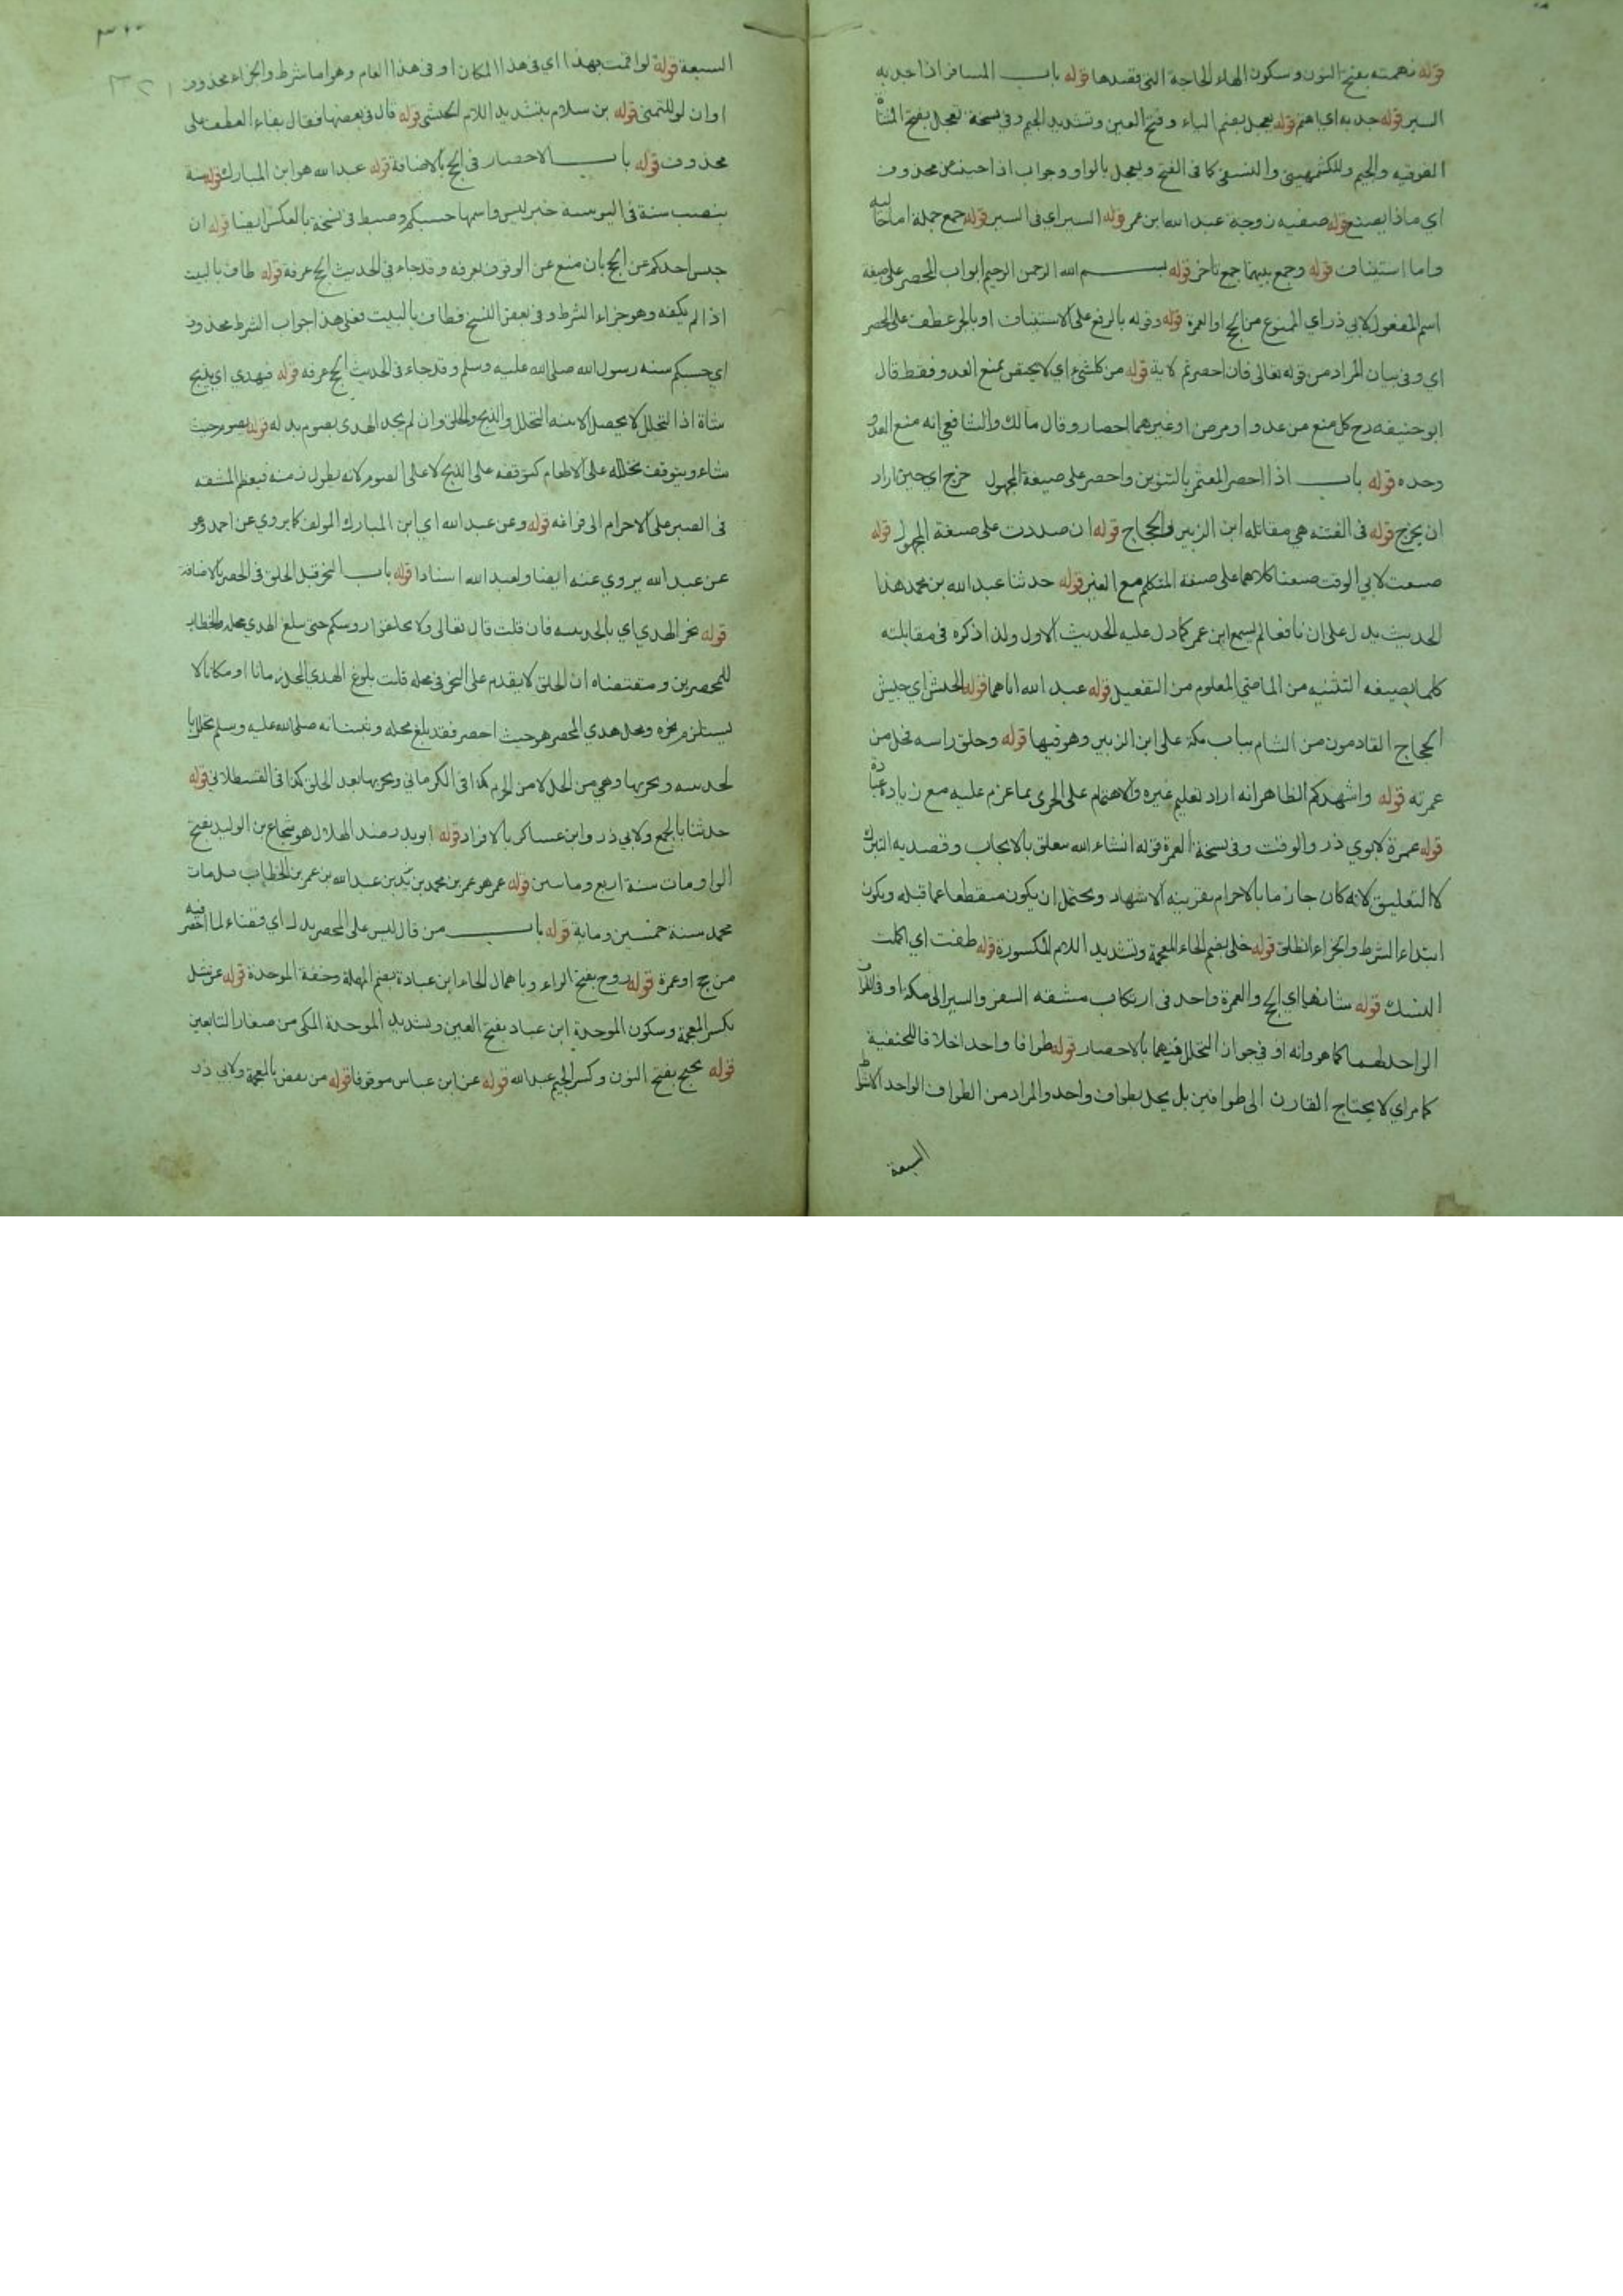 قوله نهمته بفتح النون وسكون الهاء الحاجة التي يقصدها قوله باب المسافر اذا جد به
السير قوله جد به اي اهتم قوله يعجل بضم الياء وفتح العين وتشديد الجيم وفي نسخة تعجل بفتح المثناة
الفوقيه والجيم وللكشمهيني والنسفي كما في الفتح ويعجل بالواو وجواب اذا حينئذ محذوف
اي ماذا يصنع قوله صفيه زوجة عبد الله ابن عمر قوله السير اي في السير قوله جمع جملة اما حالية
واما استيناف قوله وجمع بينهما جمع تأخر قوله بسم الله الرحمن الرحيم ابواب المحصر على صيغة
اسم المفعول لابي ذر اي الممنوع من الحج او العمرة قوله وقوله بالرفع على الاستيناف او بالجر عطف على المحصر
اي وفي بيان المراد من قوله تعالى فان احصرتم الاية قوله من كل شيء اي لا يختص بمنع العدو فقط قال
ابو حنيفه رح كل منع من عدو او مرض او غيرهما احصار وقال مالك والشافعي انه منع العدو
وحده قوله باب اذا احصر المعتمر بالتنوين واحصر على صيغة المجهول خرج اي حين اراد
ان يخرج قوله في الفتنه هي مقاتله ابن الزبير والحجاج قوله ان صددت على صيغة المجهول قوله
صنعت لابي الوقت صنعنا كلاهما على صيغة المتكلم مع الغير قوله حدثنا عبد الله بن محمد هذا
الحديث يدل على ان نافعا لم يسمع ابن عمر كما دل عليه الحديث الاول ولذا ذكره في مقابلته
كلما بصيغه التثنيه من الماضي المعلوم من التفعيل قوله عبد الله اباهما قوله الجيش اي جيش
الحجاج القادمون من الشام بباب مكة على ابن الزبير وهو فيها قوله وحلق راسه فحل من
عمرته قوله واشهدكم الظاهر انه اراد تعليم غيره والاهتمام على الحرى بما عزم عليه مع زيادة
قوله عمرة لابوي ذر والوقت وفي نسخة العمرة قوله انشاء الله معلق بالايجاب وقصد به التبرك
لا التعليق لانه كان جازما بالاحرام بقرينه الاشهاد ويحتمل ان يكون منقطعا عما قبله ويكون
ابتداء الشرط والجزاء انطلق قوله خلي بضم الخاء المعجمة وتشديد اللام المكسورة قوله طفت اي اكملت
النسك قوله شانهما اي الحج والعمرة واحد في ارتكاب مشقه السفر والسير الى مكة او في القران
الواحد لهما كما هو وانه او في جواز التحلل فيهما بالاحصار قوله طوافا واحدا خلافا للحنفية
كما مر اي لا يحتاج القارن الى طوافين بل يحل بطواف واحد والمراد من الطواف الواحد الاشواط
السبعة
السبعة قوله لو اقمت بهذا اي في هذا المكان او في هذا العام وهو اما شرط والجزاء محذوف
او ان لو للتمنى قوله بن سلام بتشديد اللام قوله قال في بعضها فقال بفاء العطف على
محذوف قوله باب الاحصار في الحج بالاضافة قوله عبد الله هو ابن المبارك قوله سنة
بنصب سنة في اليونينية خبر ليس واسمها حسبكم وضبط في نسخة بالعكس ايضا قوله ان
حبس احدكم عن الحج بان منع عن الوقوف بعرفه وقد جاء في الحديث الحج عرفة قوله طاف بالبيت
اذا لم يكفه وهو جزاء الشرط وفي بعض النسخ فطاف بالبيت فعلى هذا جواب الشرط محذوف
اي حسبكم سنه رسول الله صلى الله عليه وسلم وقد جاء في الحديث الحج عرفه قوله فيهدي اي يذبح
شاة اذا التحلل لا يحصل الا بنيه التحلل والذبح والحلق وان لم يجد الهدى يصوم بدله قوله يصوم حيث
شاء ويتوقف تحلله على الاطعام كتوقفه على الذبح لا على الصوم لانه يطول زمنه فيعظم المشقه
في الصبر على الاحرام الى فراغه قوله وعن عبد الله اي ابن المبارك المولف كما يروي عن احمد وهو
عن عبد الله يروي عنه ايضا ولعبد الله اسنادا قوله باب النحر قبل الحلق في الحصر بالاضافة
قوله نحر الهدي اي بالحديبيه فان قلت قال تعالى ولا تحلقوا روسكم حتى يبلغ الهدي محله والخطاب
للمحصرين ومقتضاه ان الحلق لا يقدم على النحر في محله قلت بلوغ الهدي المحل زمانا او مكانا لا
يستلزم نحره ومحل هدي المحصر هو حيث احصر فقد بلغ محله وثبت انه صلى الله عليه وسلم تحلل با
لحديبيه ونحر بها وهي من الحل لا من الحرم كذا في الكرماني ونحر بها بعد الحلق كذا في القسطلاني قوله
حدثنا بالجمع ولابي ذر وابن عساكر بالافراد قوله ابو بدر ضد الهلال هو شجاع بن الوليد بفتح
الواو مات سنة اربع ومايتين قوله عمر هو عمر بن محمد بن زيد بن عبد الله بن عمر بن الخطاب مات
محمد سنة خمسين وماية قوله باب من قال ليس على المحصر بدل اي قضاء لما احصر فيه
من حج او عمرة قوله روح بفتح الراء وباهمال الحاء ابن عبادة بضم المهملة وخفة الموحدة قوله عن شبل
بكسر المعجمة وسكون الموحدة ابن عباد بفتح العين وتشديد الموحدة المكي من صغار التابعين
قوله نجيح بفتح النون وكسر الجيم عبد الله قوله عن ابن عباس موقوفا قوله من نقض بالمعجمة ولابي ذر